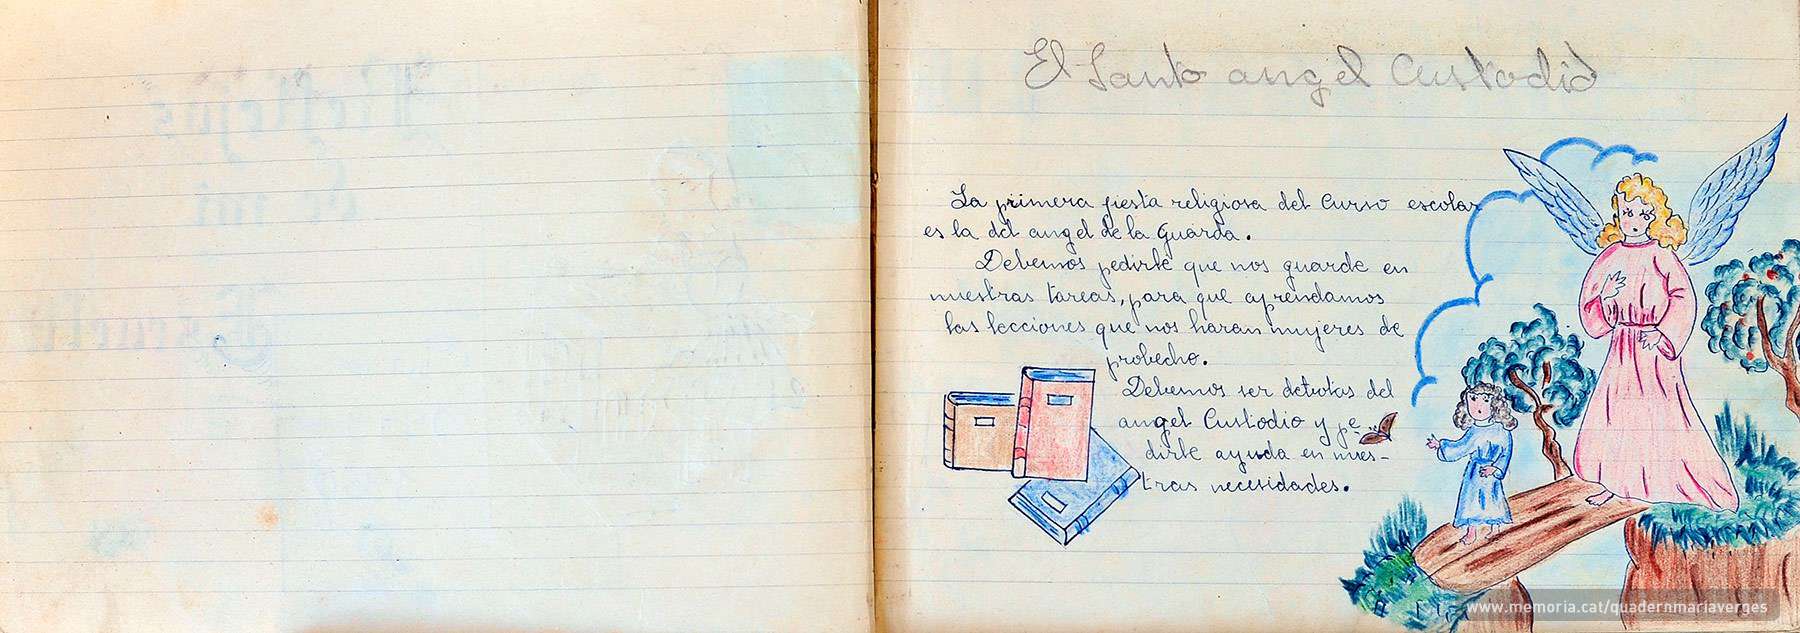 El Santo angel Custodio
La primera fiesta religiosa del Curso escolar
es la del angel de la Guarda.
Debemos pedirle que nos guarde en
nuestras tareas, para que aprendamos
las lecciones que nos haran mujeres de
probecho.
Debemos ser devotas del
angel Custodio y pe
dirle ayuda en nues-
tras necesidades.
www.memoria.cat/quadernmariaverges